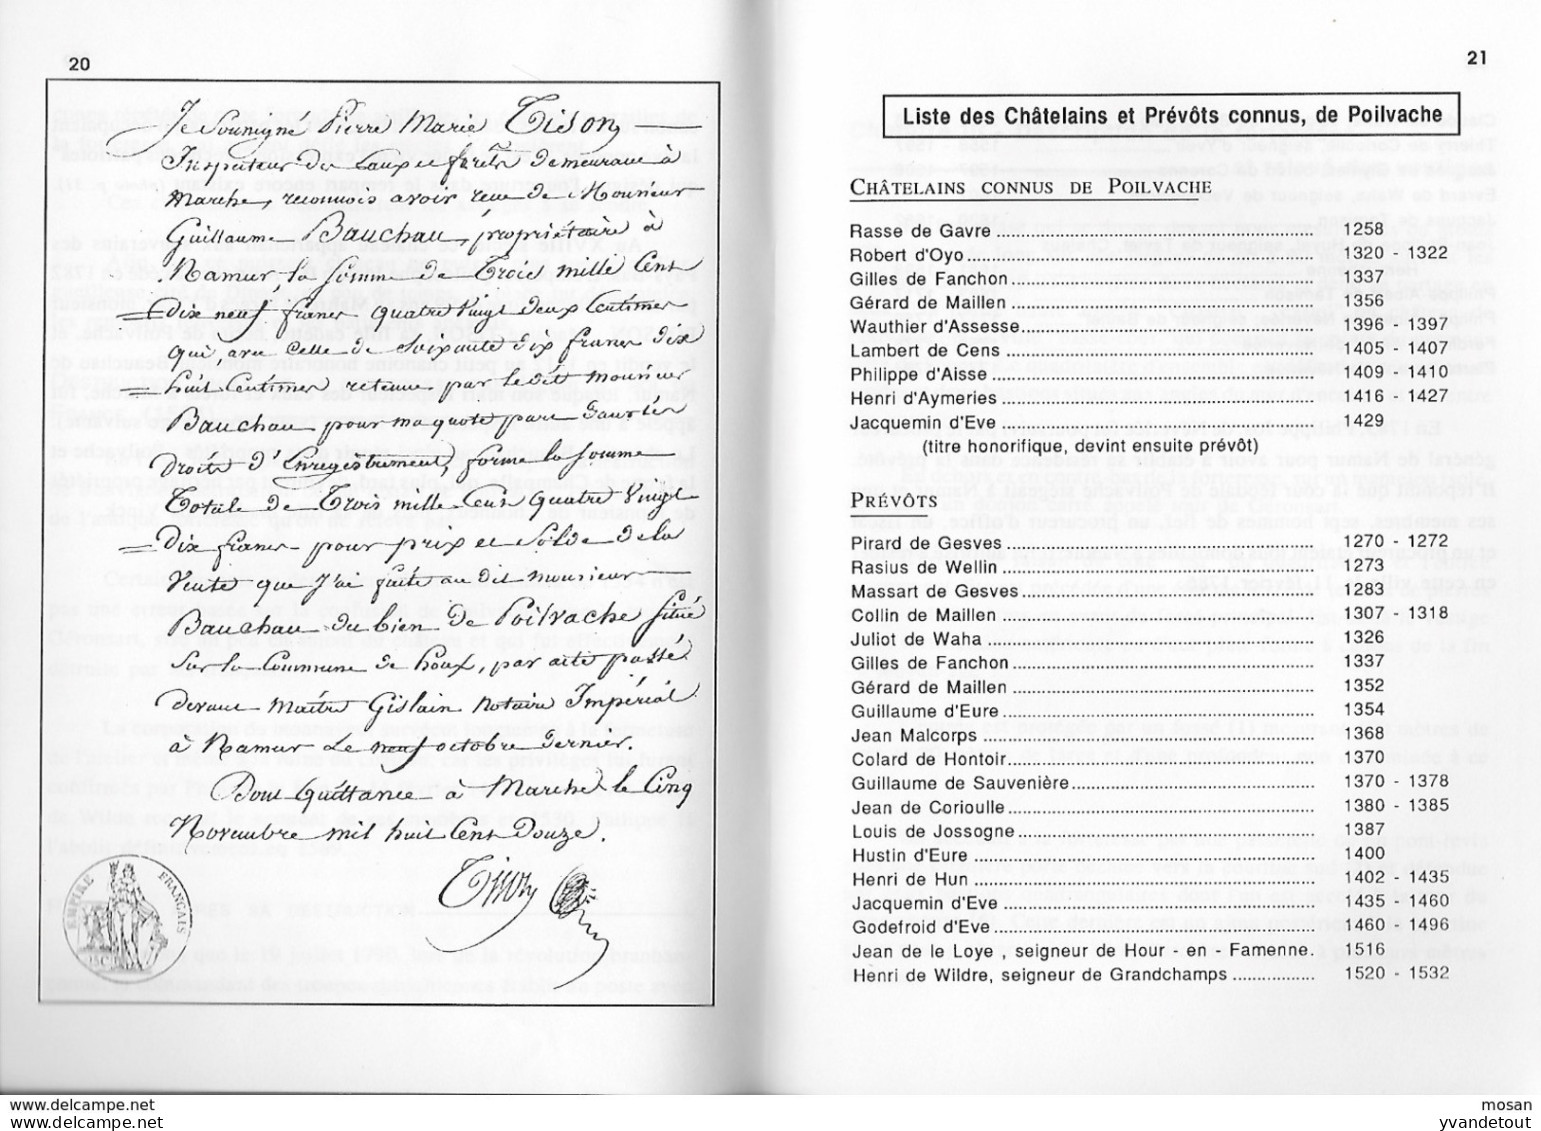 20
Je Soussigné Pierre Marie Tison
Inspecteur des Eaux et forêts demeurant à
Marche, reconnois avoir reçu de Monsieur
Guillaume Bauchau, propriétaire à
Namur la Somme de Trois mille Cent
Dix neuf francs quatre Vingt deux Centimes
qui, avec Celle de Soixante dix francs dix
huit Centimes retenue par le dit Monsieur
Bauchau pour ma quote part dans les
Droits d'Enregistrement, forme la Somme
Totale de Trois mille Cent Quatre Vingt
Dix francs pour prix et Solde de la
Vente que J'ai faite au dit Monsieur
Bauchau du bien de Poilvache Situé
Sur la Commune de houx, par acte passé
devant Maître Gislain Notaire Impérial
à Namur Le neuf octobre dernier.
Dont Quittance à Marche le Cinq
Novembre mil huit Cent Douze.
Tison
EMPIRE FRANÇAIS
21
Liste des Châtelains et Prévôts connus, de Poilvache
CHÂTELAINS CONNUS DE POILVACHE
Rasse de Gavre ........ 1258
Robert d'Oyo ........ 1320 - 1322
Gilles de Fanchon ........ 1337
Gérard de Maillen ........ 1356
Wauthier d'Assesse ........ 1396 - 1397
Lambert de Cens ........ 1405 - 1407
Philippe d'Aisse ........ 1409 - 1410
Henri d'Aymeries ........ 1416 - 1427
Jacquemin d'Eve ........ 1429
(titre honorifique, devint ensuite prévôt)
PRÉVÔTS
Pirard de Gesves ........ 1270 - 1272
Rasius de Wellin ........ 1273
Massart de Gesves ........ 1283
Collin de Maillen ........ 1307 - 1318
Juliot de Waha ........ 1326
Gilles de Fanchon ........ 1337
Gérard de Maillen ........ 1352
Guillaume d'Eure ........ 1354
Jean Malcorps ........ 1368
Colard de Hontoir ........ 1370
Guillaume de Sauvenière ........ 1370 - 1378
Jean de Corioulle ........ 1380 - 1385
Louis de Jossogne ........ 1387
Hustin d'Eure ........ 1400
Henri de Hun ........ 1402 - 1435
Jacquemin d'Eve ........ 1435 - 1460
Godefroid d'Eve ........ 1460 - 1496
Jean de le Loye , seigneur de Hour - en - Famenne. 1516
Henri de Wildre, seigneur de Grandchamps ........ 1520 - 1532
www.delcampe.net
mosan
www.delcampe.net
yvandetout